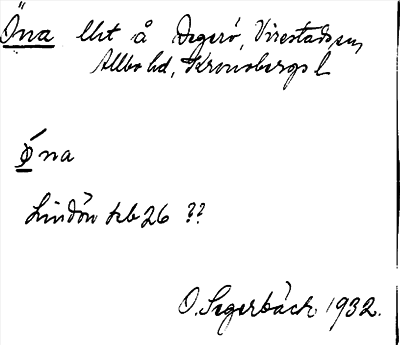 Öna lht å Degerö, Virestads sn,
Allbo hd, Kronobergs l
Óna
Lindön kb 26 ??
O. Segerbäck 1932.